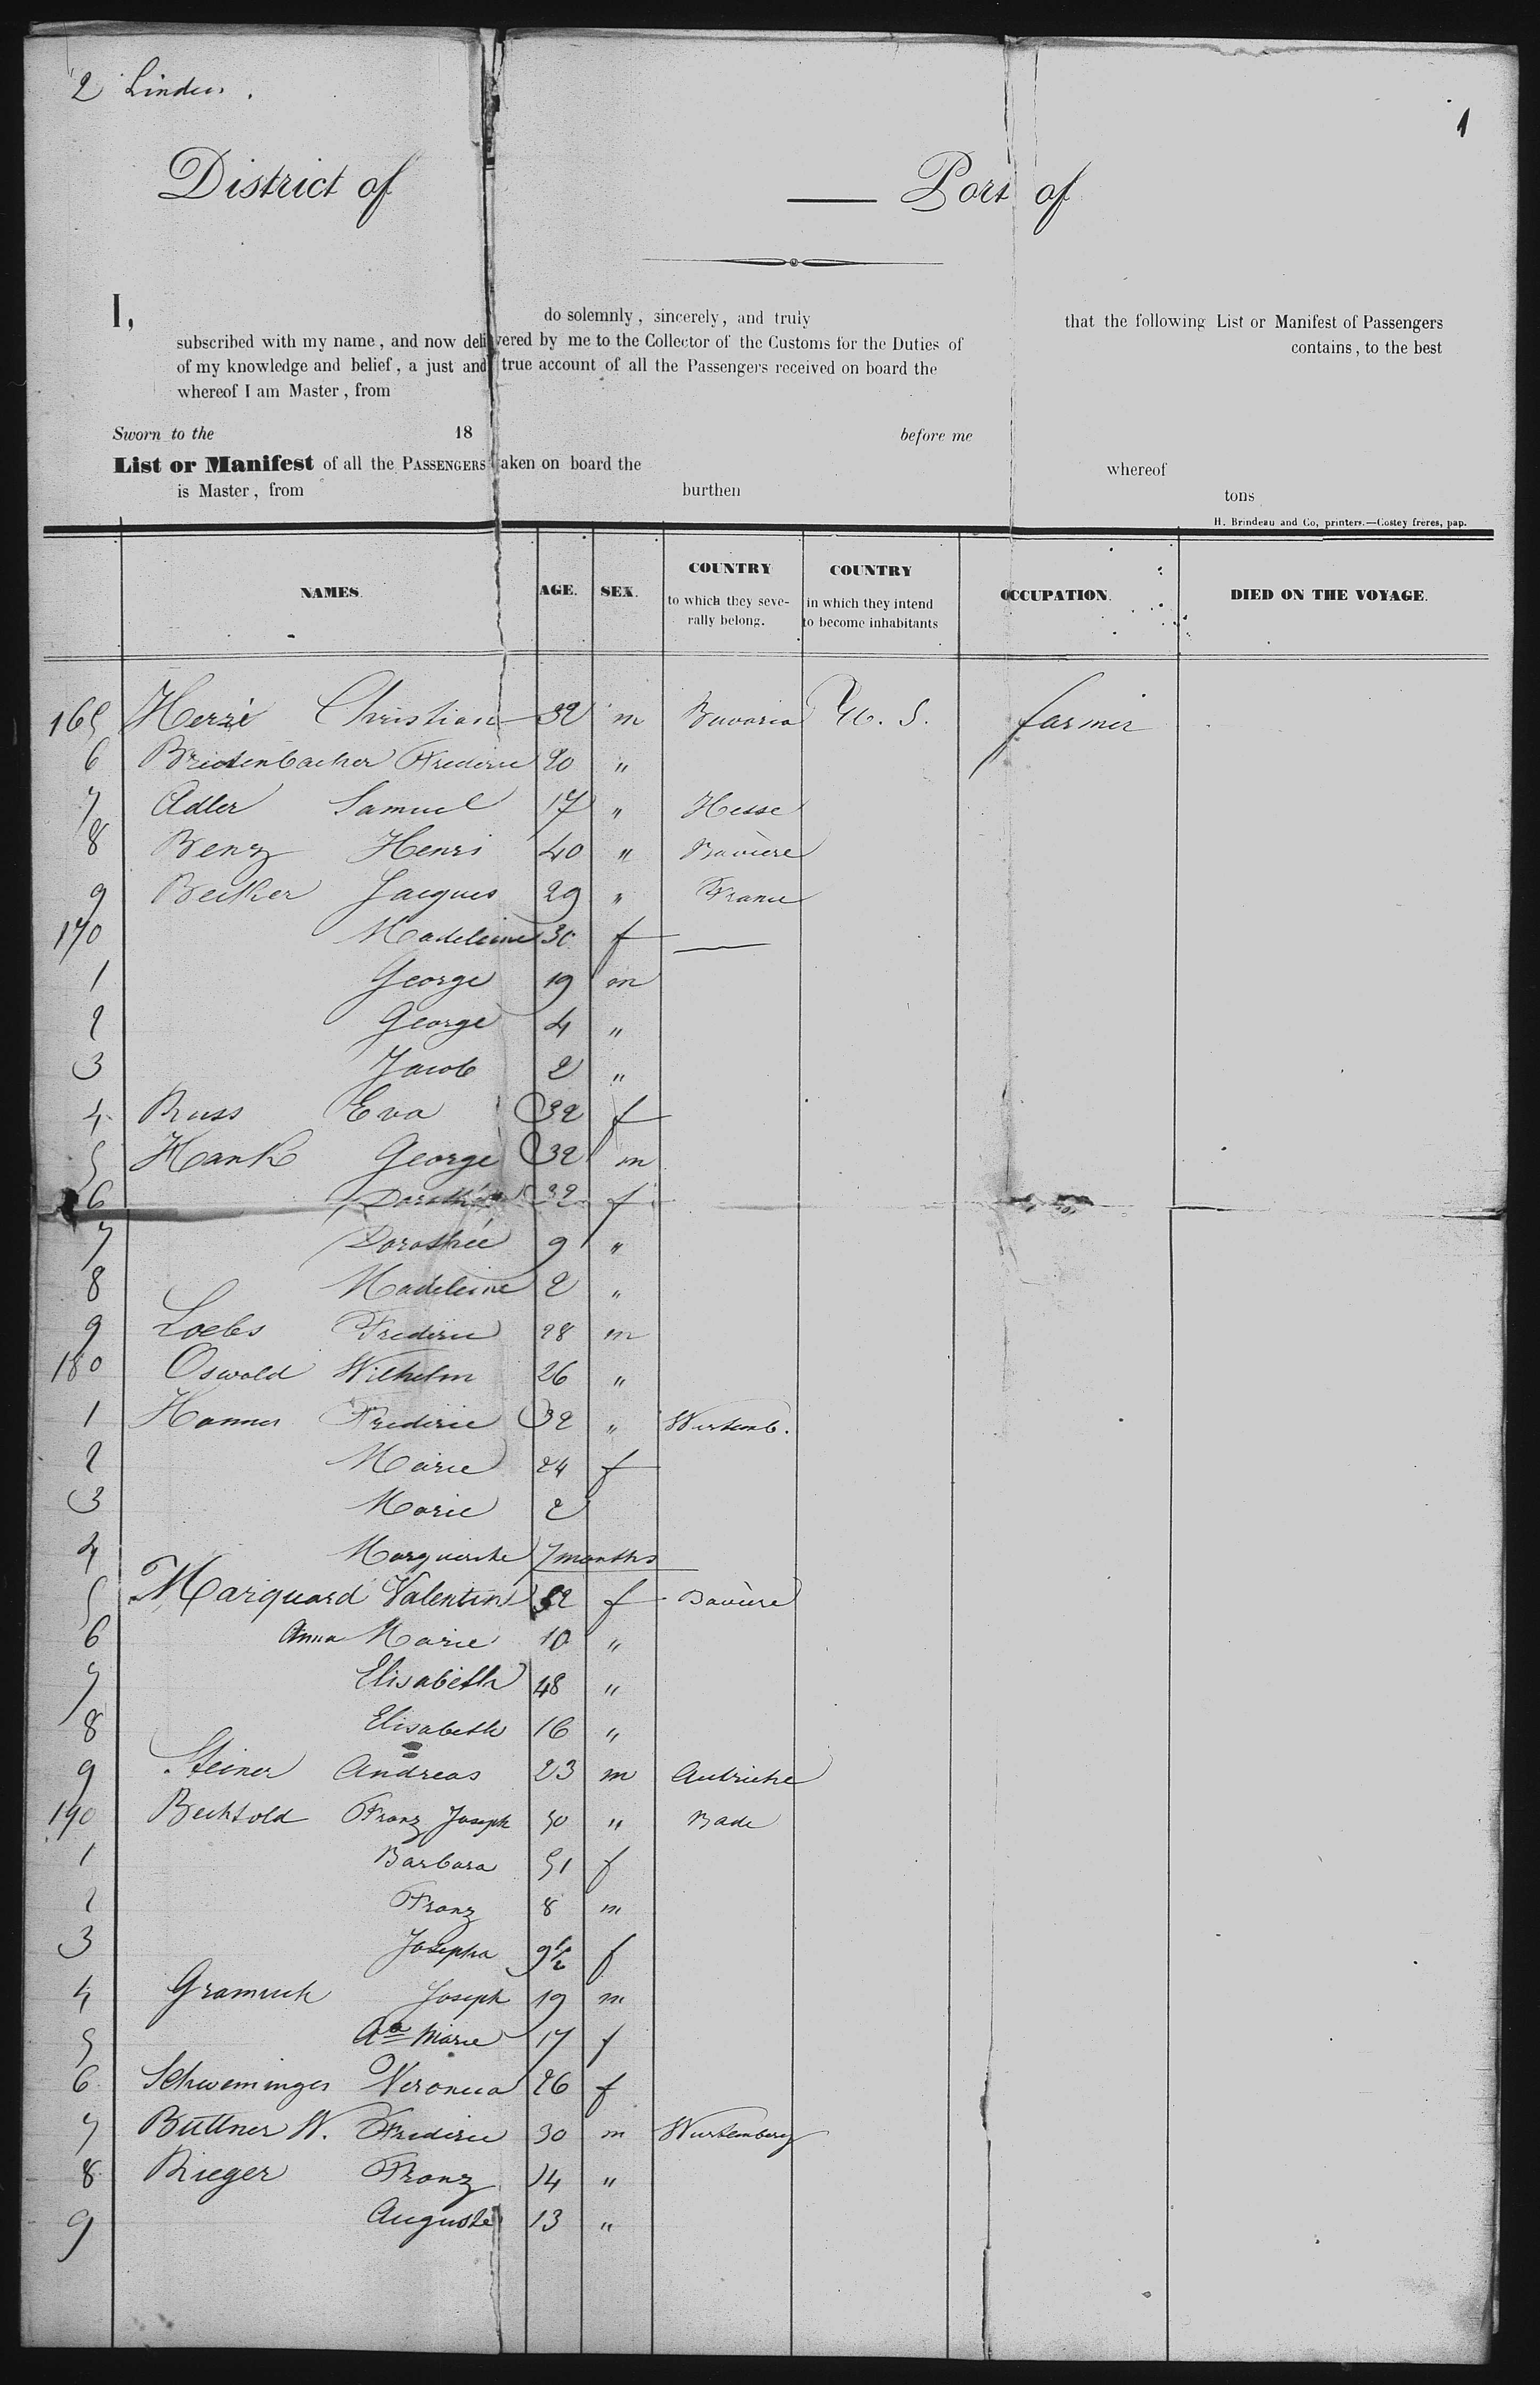 2 Linden.
1
District of — Port of
I, do solemnly, sincerely, and truly that the following List or Manifest of Passengers
subscribed with my name, and now delivered by me to the Collector of the Customs for the Duties of contains, to the best
of my knowledge and belief, a just and true account of all the Passengers received on board the
whereof I am Master, from
Sworn to the 18 before me
List or Manifest of all the PASSENGERS taken on board the whereof
is Master, from burthen tons
H. Brindeau and Co, printers.—Costey frères, pap.
NAMES. AGE. SEX. COUNTRY to which they severally belong. COUNTRY in which they intend to become inhabitants OCCUPATION. DIED ON THE VOYAGE.
165 Herzé Christian 32 m Bavaria U. S. farmer
6 Breidenbacher Frederic 20 "
7 Adler Samuel 17 " Hesse
8 Benz Henri 40 " Bavière
9 Becker Jacques 29 " France
170 Madeleine 30 f —
1 George 19 m
2 George 4 "
3 Jacob 2 "
4 Russ Eva 32 f
5 Hank George 32 m
6 Dorothée 32 f
7 Dorothée 9 "
8 Madeleine 2 "
9 Loebs Frederic 28 m
180 Oswald Wilhelm 26 "
1 Hanner Frederic 32 " Wurtemb.
2 Marie 24 f
3 Marie 2
4 Marguerite 7 months
5 Marquard Valentin 52 f Bavière
6 Anna Marie 10 "
7 Elisabeth 48 "
8 Elisabeth 16 "
9 Steiner Andreas 23 m Autriche
190 Bechtold Franz Joseph 50 " Bade
1 Barbara 51 f
2 Franz 8 m
3 Josepha 9½ f
4 Joseph 19 m
5 Aª Marie 17 f
6 Schweninger Veronica 26 f
7 Büttner W. Frederic 30 m Wurtemberg
8 Rieger Franz 14 "
9 Auguste 13 "